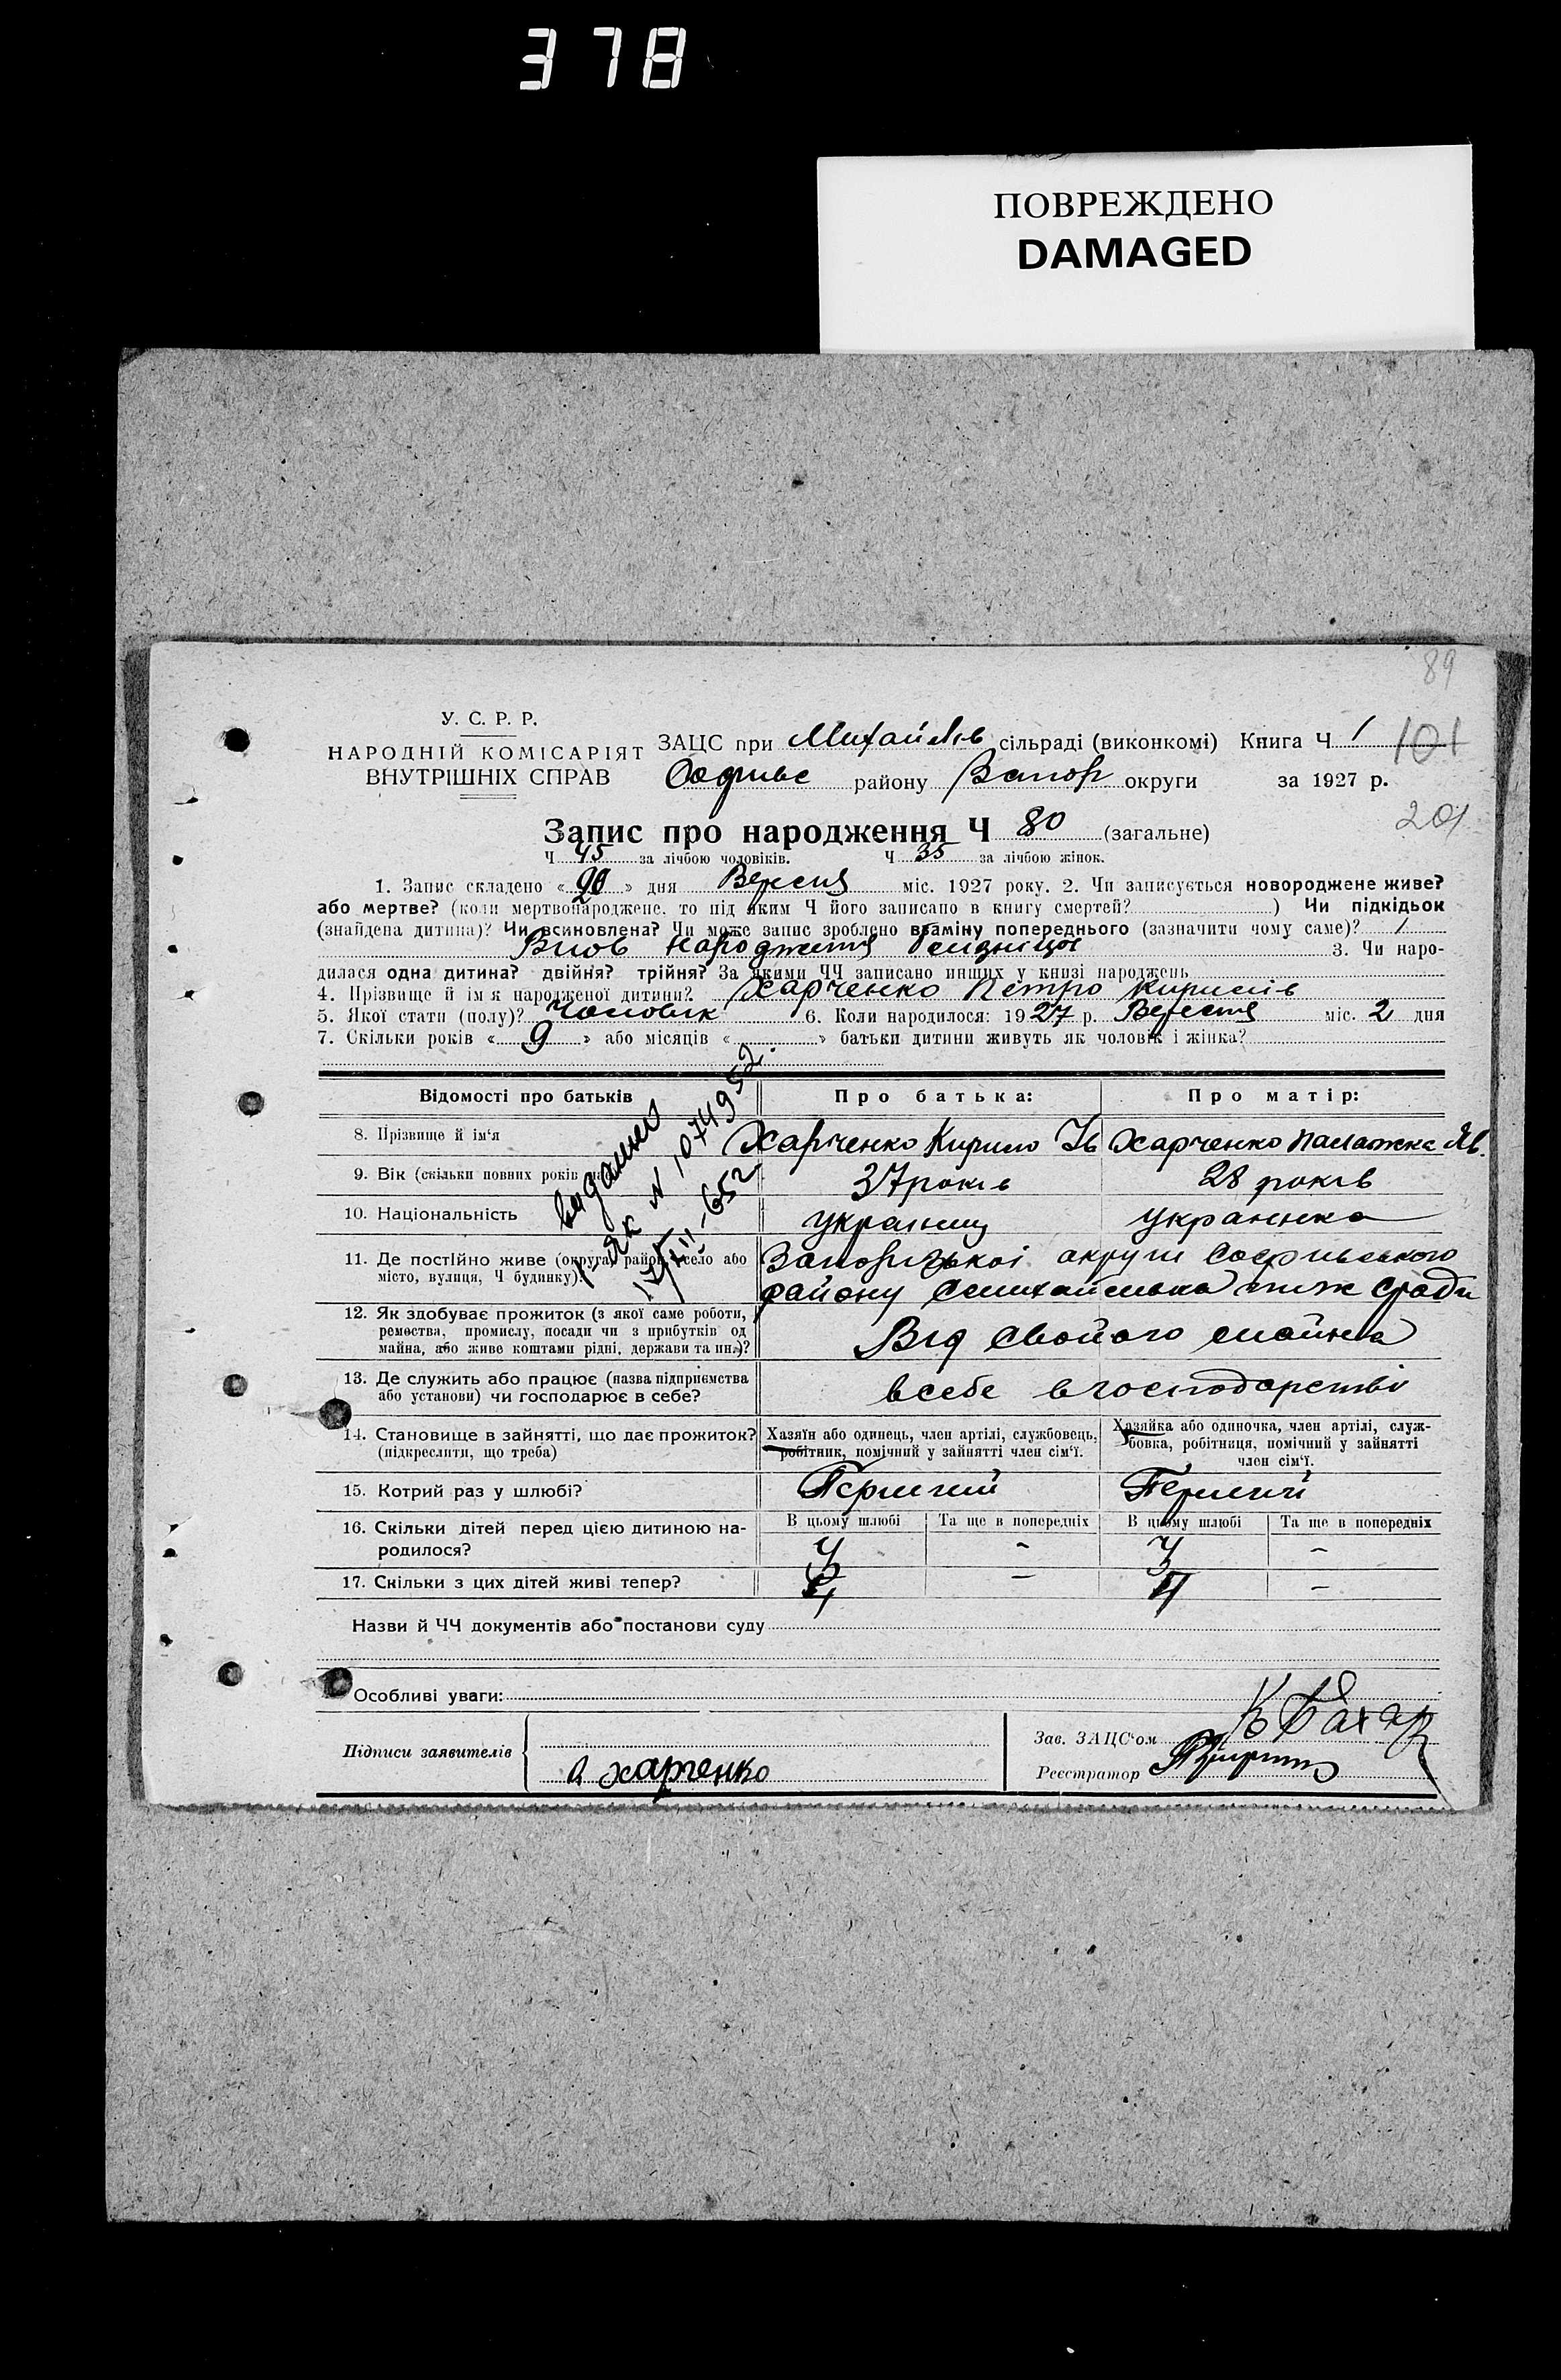 378
ПОВРЕЖДЕНО
DAMAGED
89
У. С. Р. Р.
НАРОДНІЙ КОМІСАРІЯТ
ВНУТРІШНІХ СПРАВ
ЗАЦС при Михайлів сільраді (виконкомі) Книга Ч 1
101
району Запор округи за 1927 р.
201
Запис про народження Ч 80 (загальне)
Ч 45 за лічбою чоловіків. Ч 35 за лічбою жінок.
1. Запис складено « 20 » дня Вересня міс. 1927 року. 2. Чи записується новороджене живе?
або мертве? (коли мертвонароджене, то під яким Ч його записано в книгу смертей? ) Чи підкідьок
(знайдена дитина)? Чи всиновлена? Чи може запис зроблено взаміну попереднього (зазначити чому саме)? 1
3. Чи наро-
дилася одна дитина? двійня? трійня? За якими ЧЧ записано инших у книзі народжень
4. Прізвище й ім'я народженої дитини? Харченко Петро Кирилів
5. Якої стати (полу)? Чоловік 6. Коли народилося: 1927 р. Вересня міс. 2 дня
7. Скільки років « 9 » або місяців « » батьки дитини живуть як чоловік і жінка?
Відомості про батьків Про батька: Про матір:
8. Прізвище й ім'я Харченко Кирило Ів Харченко Палажка
9. Вік (скільки повних років 37 років 28 років
10. Національність українец українка
11. Де постійно живе (округа, район, село або
місто, вулиця, Ч будинку)? Запорізької округи
району
12. Як здобуває прожиток (з якої саме роботи,
ремества, промислу, посади чи з прибутків од
майна, або живе коштами рідні, держави та ин.)?
Від свойого майна
13. Де служить або працює (назва підприємства
або установи) чи господарює в себе?
в себе в господарстві
14. Становище в зайнятті, що дає прожиток?
(підкреслити, що треба)
Хазяїн або одинець, член артілі, службовець,
робітник, помічний у зайнятті член сім'ї.
Хазяйка або одиночка, член артілі, служ-
бовка, робітниця, помічний у зайнятті
член сім'ї.
15. Котрий раз у шлюбі? Перший Перший
16. Скільки дітей перед цією дитиною на-
родилося?
В цьому шлюбі Та ще в попередніх В цьому шлюбі Та ще в попередніх
17. Скільки з цих дітей живі тепер?
Назви й ЧЧ документів або постанови суду
Особливі уваги:
Підписи заявителів
Харченко
Зав. ЗАЦС'ом
Реєстратор